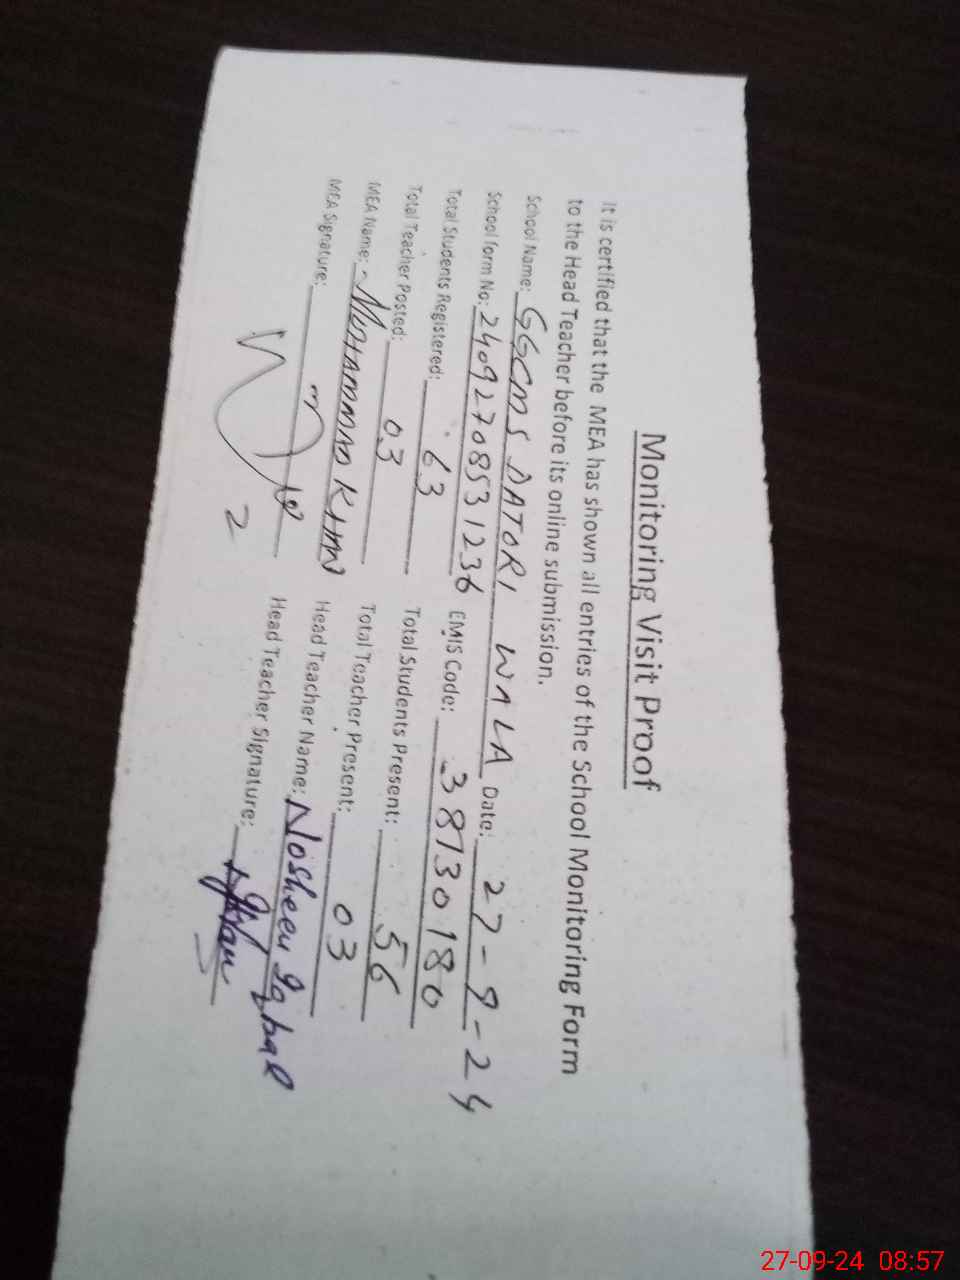 Monitoring Visit Proof
It is certified that the MEA has shown all entries of the School Monitoring Form
to the Head Teacher before its online submission.
School Name: GGCMS DATORI WALA Date: 27-9-24
School form No: 24092708531236 EMIS Code: 38130180
Total Students Registered: 63 Total Students Present: 56
Total Teacher Posted: 03 Total Teacher Present: 03
MEA Name: MUHAMMAD KHAN Head Teacher Name: Nosheen Iqbal
MEA Signature: Head Teacher Signature:
27-09-24 08:57